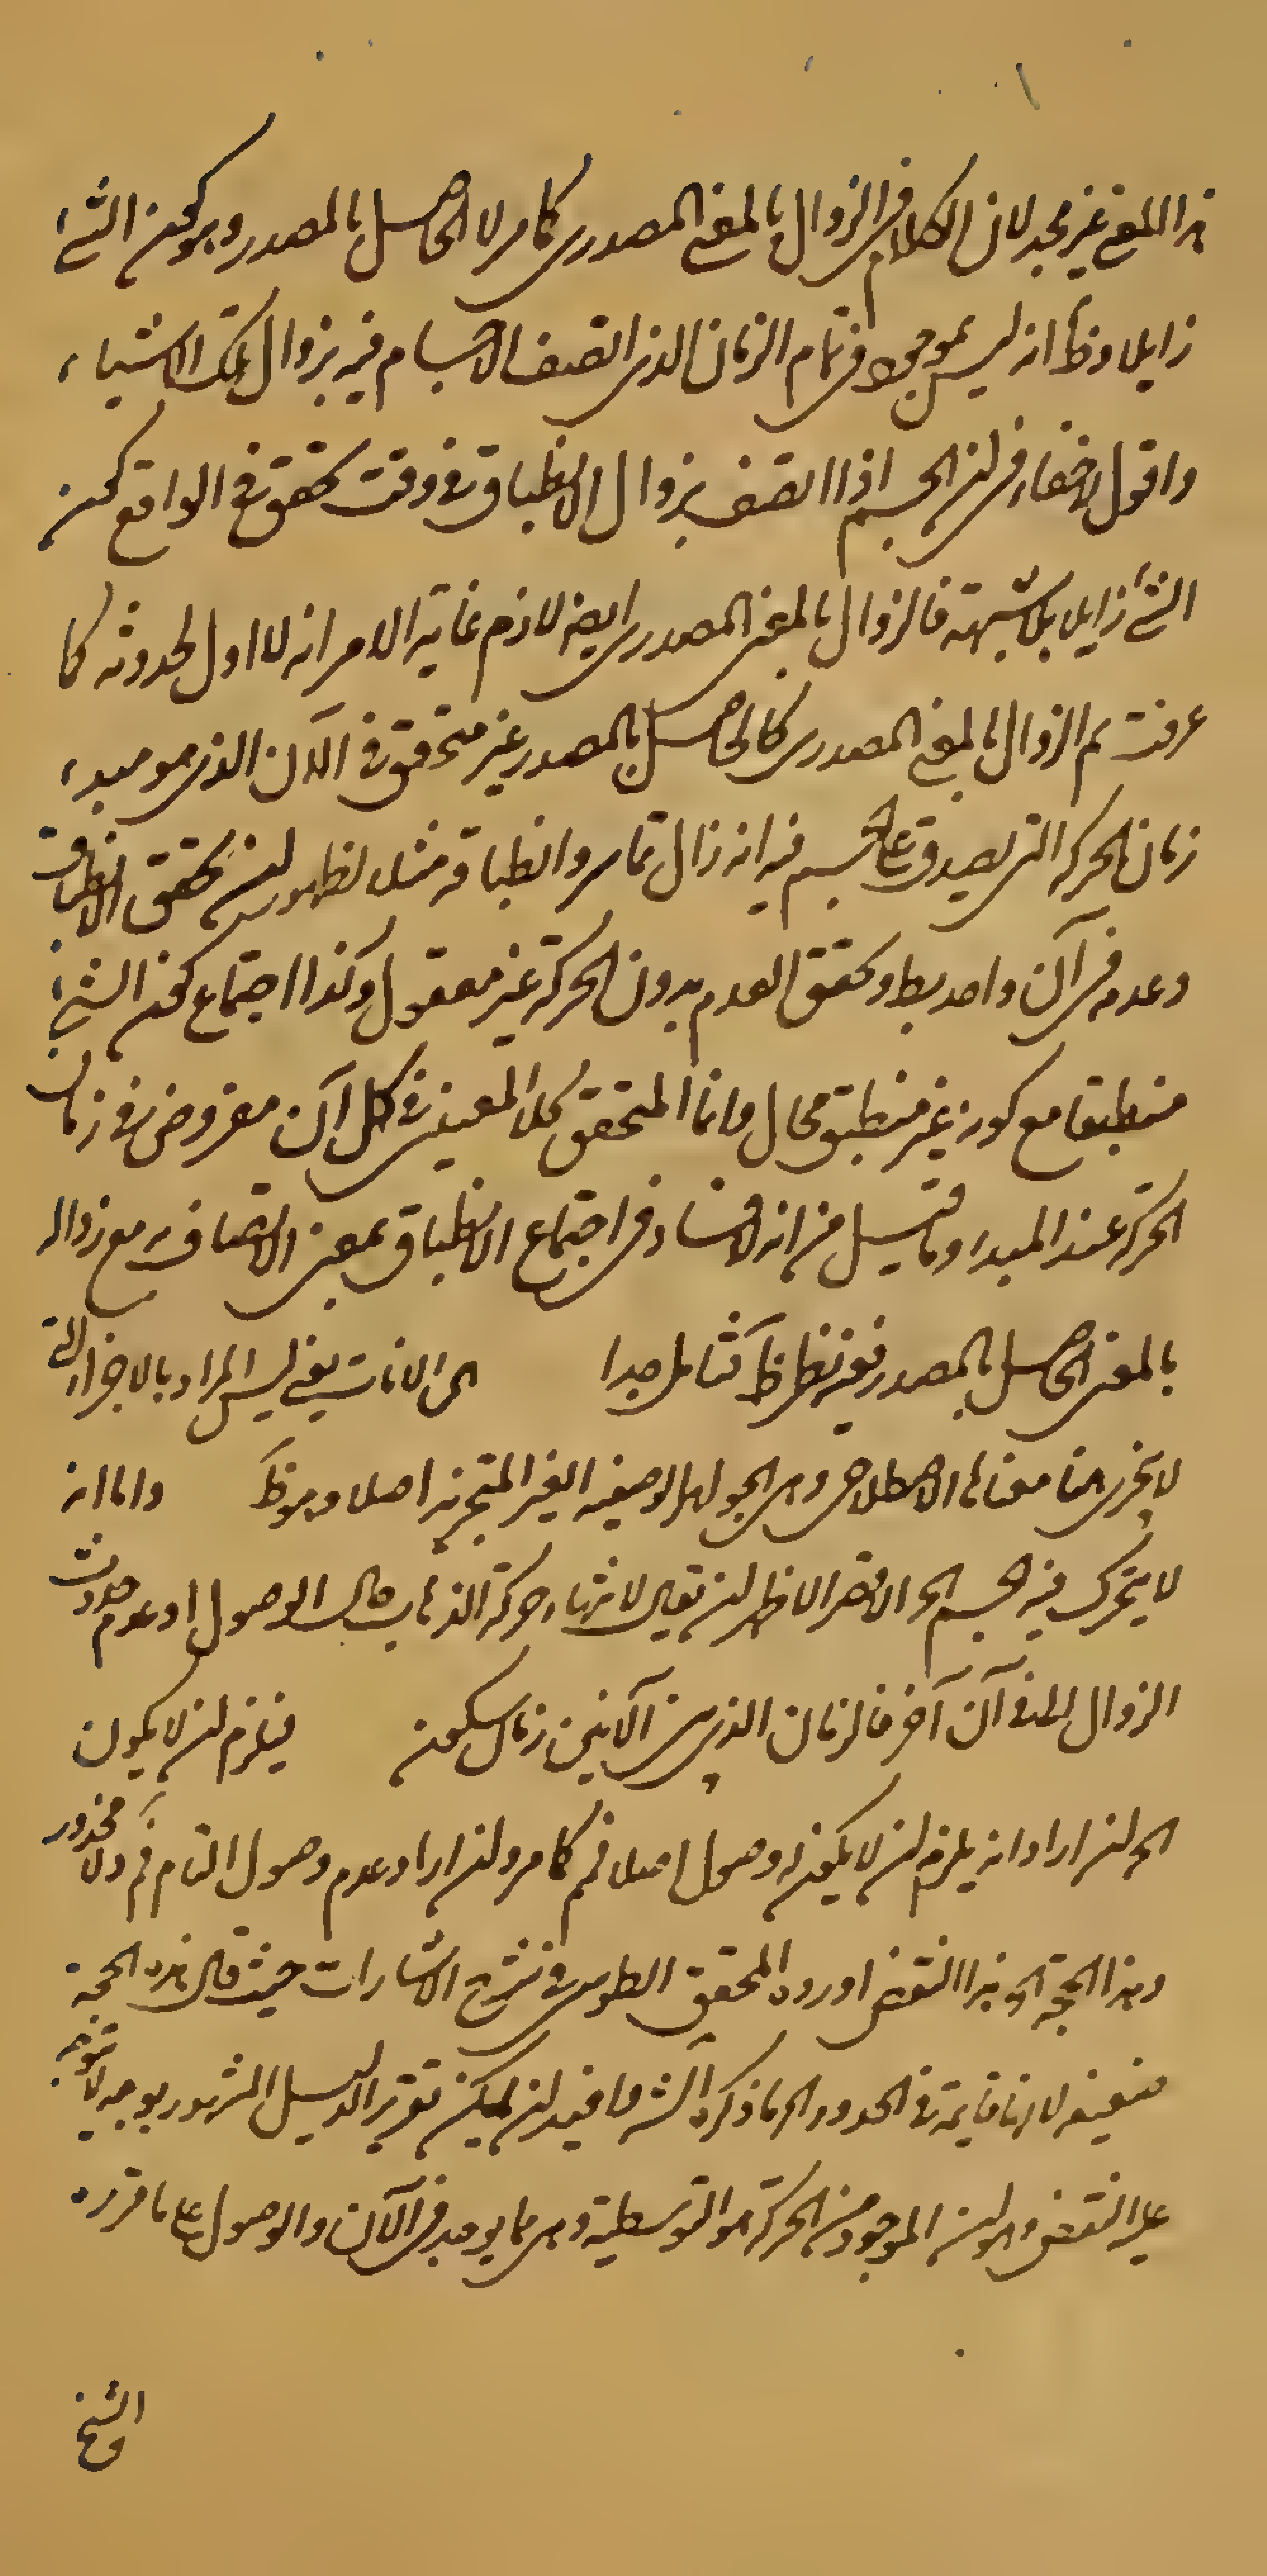 هذا المعنى غير مجد لان الكلام في الزوال بالمعنى المصدري كما مر لا الحاصل بالمصدر وهو كون الشئ
زايلا وظ انه ليس بموجود في تمام الزمان الذي اتصف الاجسام فيه بزوال تلك الاشياء
واقول لا خفاء في ان الجسم اذا اتصف بزوال الانطباق في وقت تحقق في الواقع كون
الشئ زايلا بلا شبهة فالزوال بالمعنى المصدري ايضا لازم غاية الامر انه لا اول لحدوثه كما
عرفت ثم الزوال بالمعنى المصدري كالحاصل بالمصدر غير متحقق في الآن الذي هو مبدء
زمان الحركة التي يصدق على الجسم فيه انه زال تماسه وانطباقه مثلا لظهور ان تحقق الانطباق
وعدمه في آن واحد بط وتحقق العدم بدون الحركة غير معقول وكذا اجتماع كون الشئ
منطبقا مع كونه غير منطبق محال وانما المتحقق كلا المعنيين في كل آن مفروض في زمان
الحركة عند المبدء وما قيل من انه لا فساد في اجتماع الانطباق بمعنى الاتصاف به مع زواله
بالمعنى الحاصل بالمصدر ففيه نظر ظ فتامل جدا الى الانات يعني ليس المراد بالاجزاء التي
لا تتجزى هنا معناها الاصطلاحي وهي الجواهر الوضعية الغير المتجزية اصلا وهو ظ واما انه
لا يتحرك فيه الجسم الخ الاخصر الاظهر ان يقال لانتهاء حركة الذهاب حال الوصول وعدم حدوث
الزوال الا في آن آخر فالزمان الذي بين الآنين زمان سكون فيلزم ان لا يكون
الخ ان اراد انه يلزم ان لا يكون له وصول اصلا فمم كما مر وان اراد عدم وصول التام فمم ولا محذور
وهذا الحجة الخ هذا النقض اورده المحقق الطوسي في شرح الاشارات حيث قال هذه الحجة
ضعيفة لانها قايمة في الحدود الخ ما ذكره الش فافيد ان يمكن تقرير الدليل المشهور بوجه لا يتوجه
عليه النقض وهو ان الموجود من الحركة هو التوسطية وهي مما يوجد في الآن والوصول على ما قرره
الشيخ